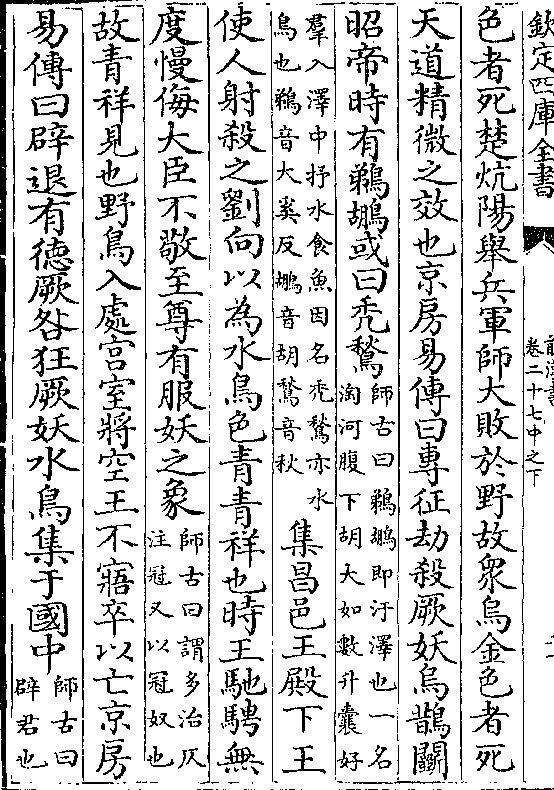 欽定四庫全書
卷二十七中之下
色者死楚炕陽舉兵軍師大敗於野故衆烏金色者死
天道精微之效也京房易傳曰專征劫殺厥妖烏鵲鬬
昭帝時有鵜鶘或曰禿鶖師古曰鵜鶘即汙澤也一名
淘河腹下胡大如數升囊好
羣入澤中抒水食魚因名禿鶖亦水
鳥也鵜音大奚反鶘音胡鶖音秋集昌邑王殿下王
使人射殺之劉向以為水鳥色青青祥也時王馳騁無
度慢侮大臣不敬至尊有服妖之象師古曰謂多治仄
注冠又以冠奴也
故青祥見也野鳥入處宫室將空王不寤卒以亡京房
易傳曰辟退有徳厥咎狂厥妖水鳥集于國中師古曰
辟君也